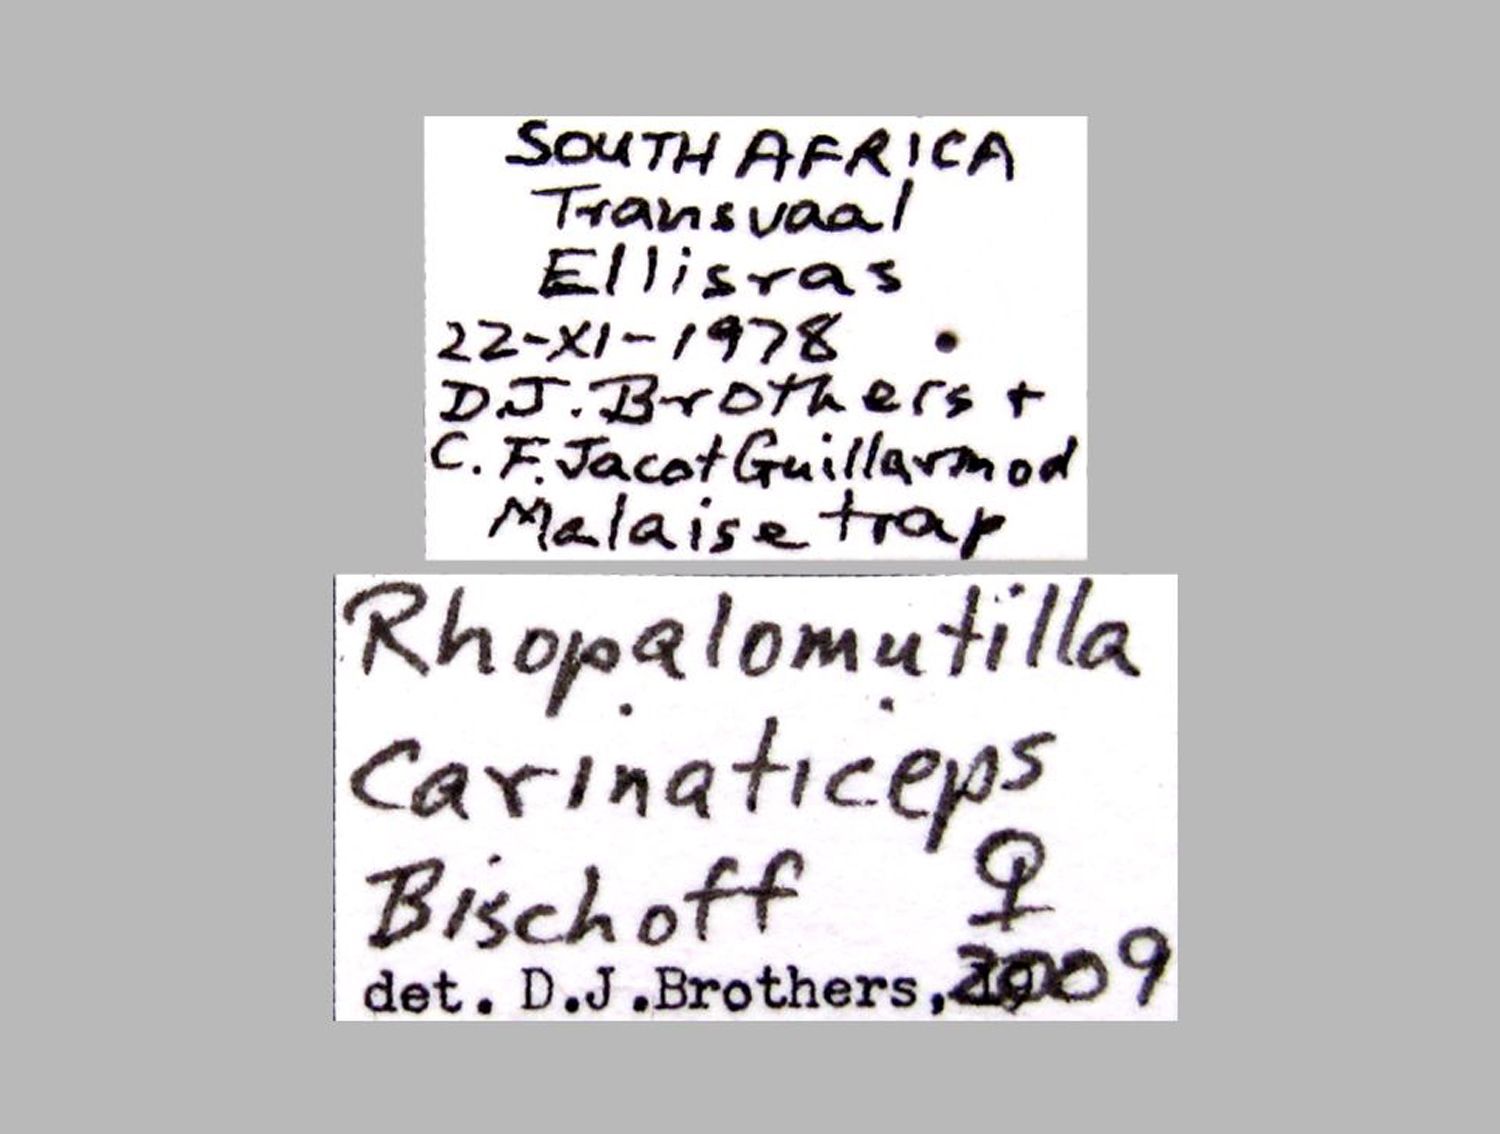 SOUTH AFRICA
Transvaal
Ellisras
22-XI-1978
D.J. Brothers +
C. F. Jacot Guillarmod
Malaise trap
Rhopalomutilla
carinaticeps
Bischoff ♀
det. D.J.Brothers, 2009